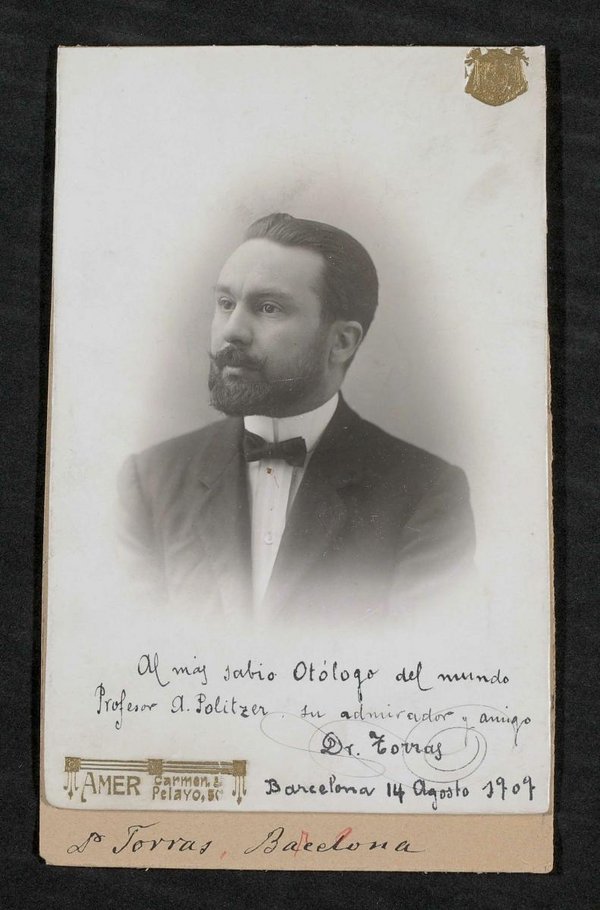 Al más sabio Otólogo del mundo
Profesor A. Politzer su admirador y amigo
Dr. Torras
Barcelona 14 Agosto 1909
AMER Carmen, 2
Pelayo, 50
Dr Torras, Barcelona